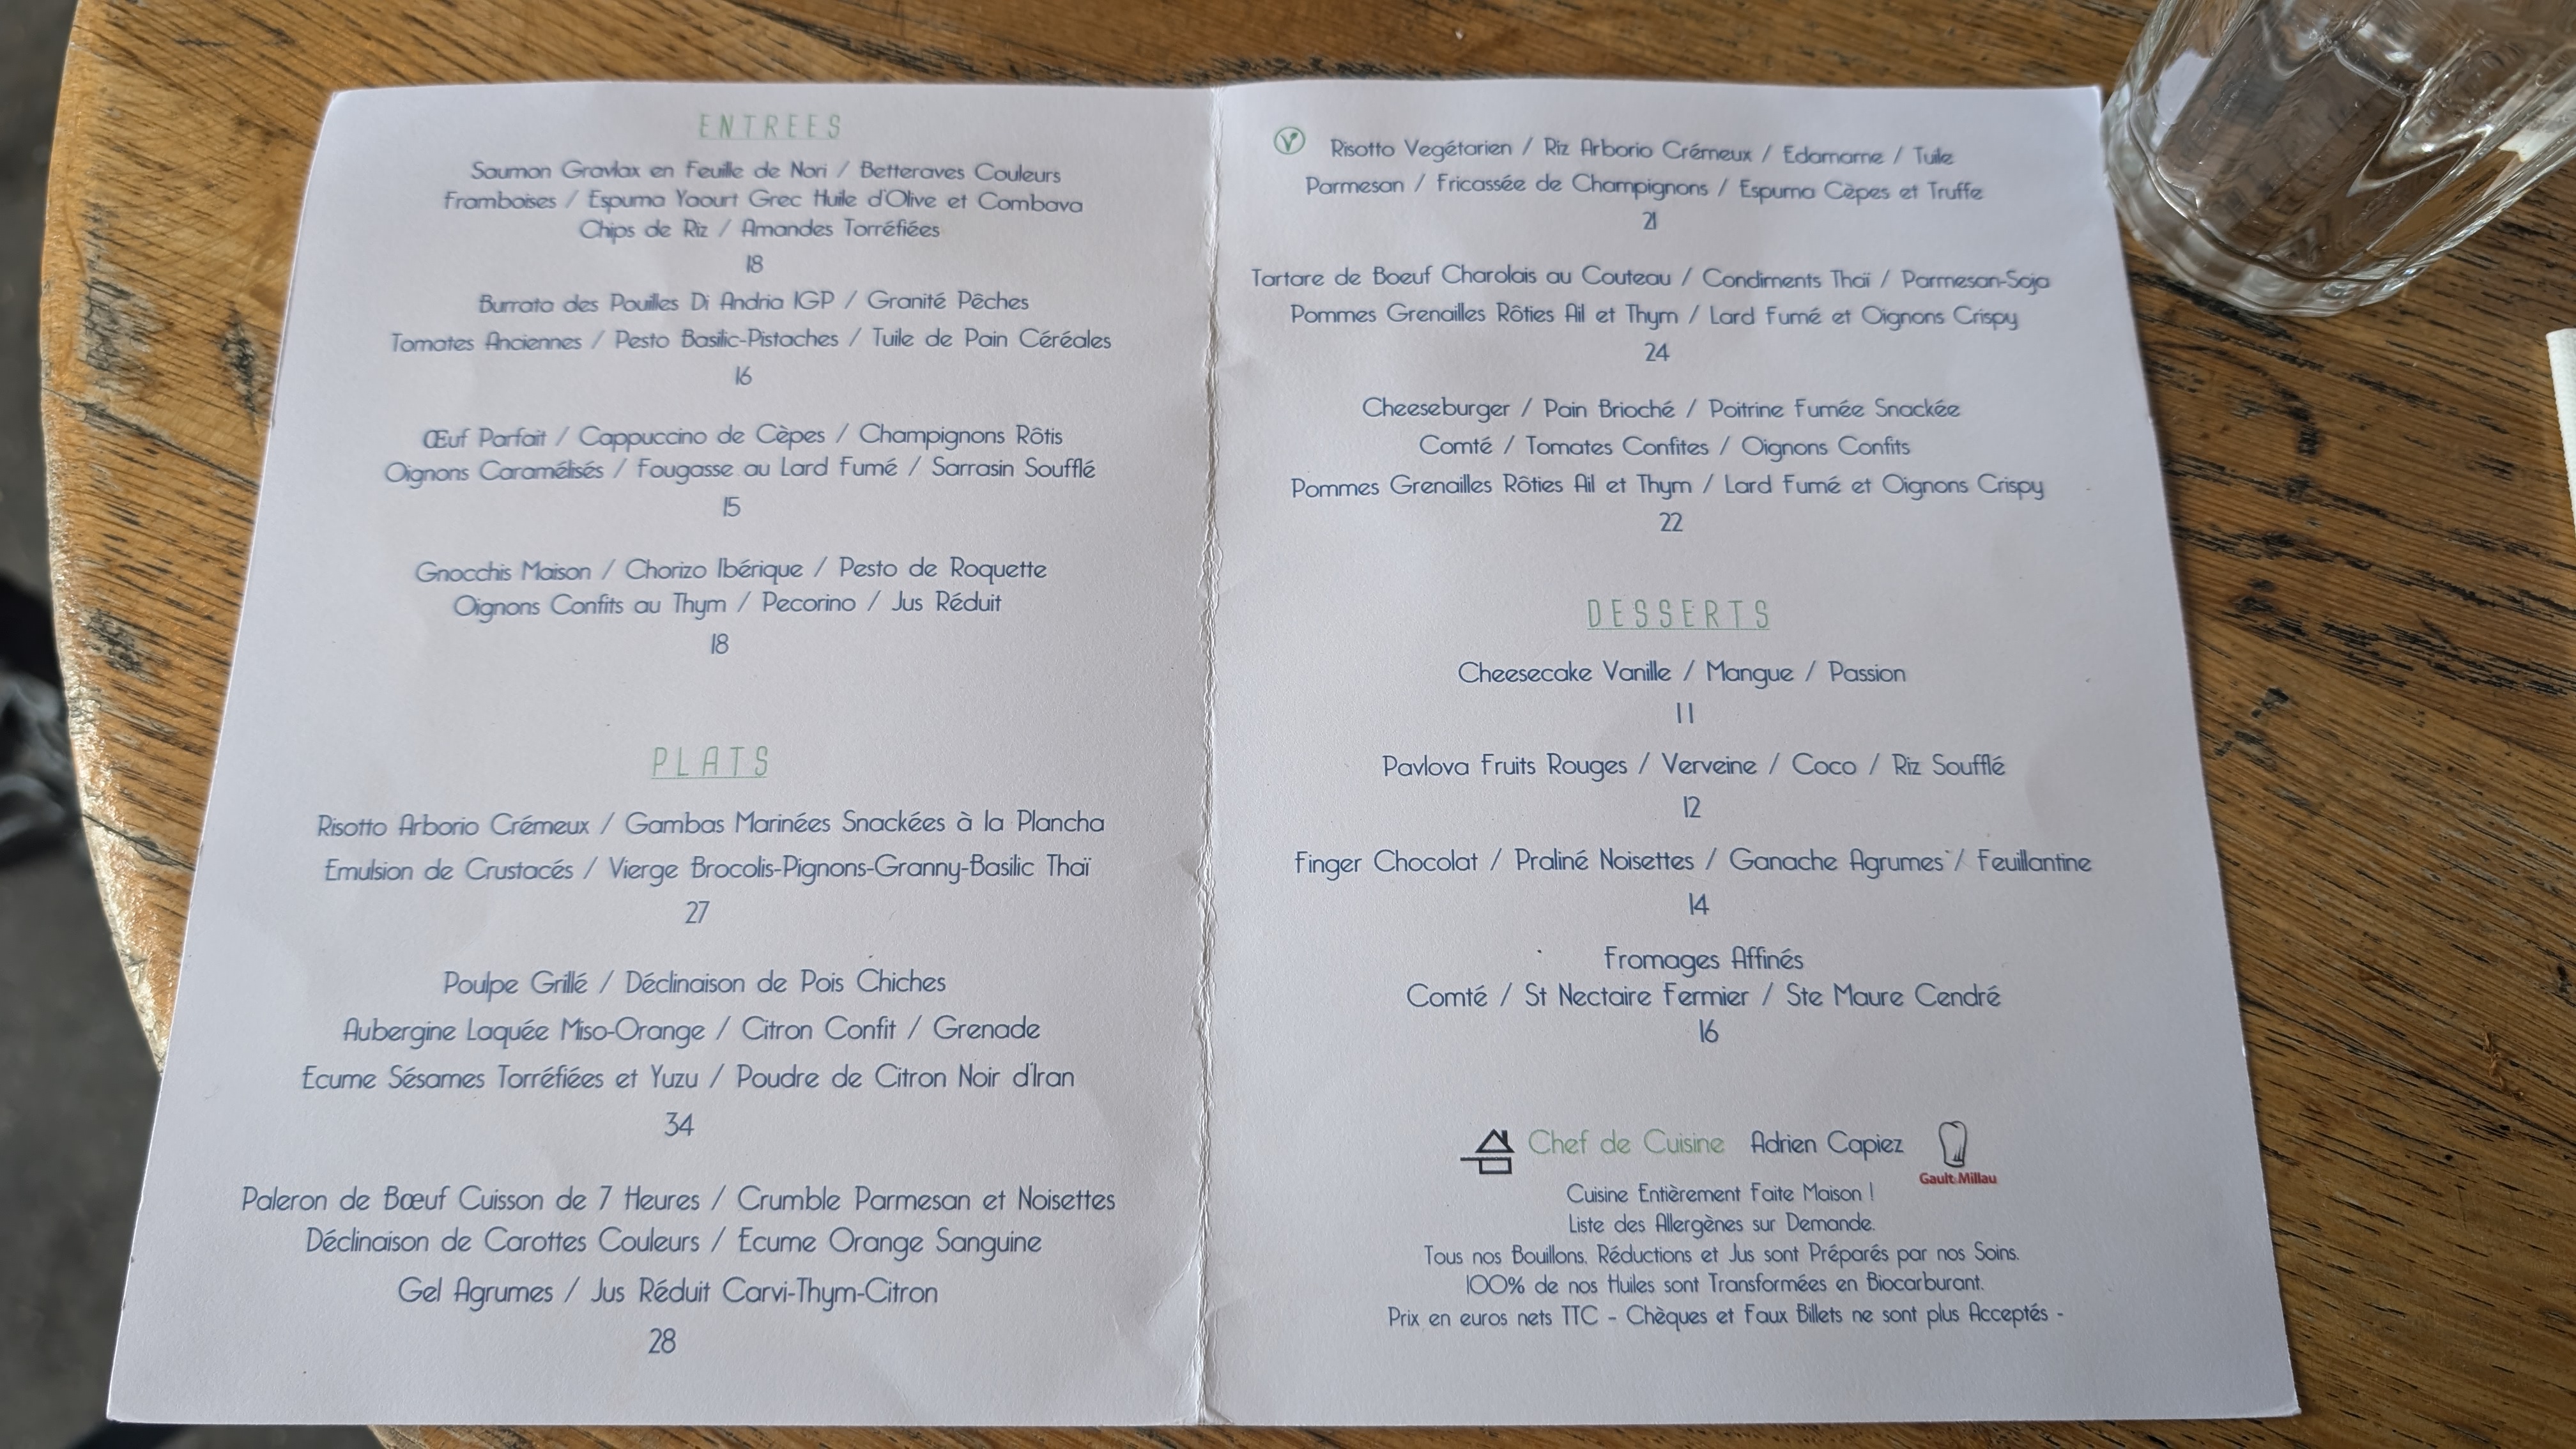 ENTREES
Saumon Gravlax en Feuille de Nori / Betteraves Couleurs
Framboises / Espuma Yaourt Grec Huile d'Olive et Combava
Chips de Riz / Amandes Torréfiées
18
Burrata des Pouilles Di Andria IGP / Granité Pêches
Tomates Anciennes / Pesto Basilic-Pistaches / Tuile de Pain Céréales
16
Œuf Parfait / Cappuccino de Cèpes / Champignons Rôtis
Oignons Caramélisés / Fougasse au Lard Fumé / Sarrasin Soufflé
15
Gnocchis Maison / Chorizo Ibérique / Pesto de Roquette
Oignons Confits au Thym / Pecorino / Jus Réduit
18
PLATS
Risotto Arborio Crémeux / Gambas Marinées Snackées à la Plancha
Emulsion de Crustacés / Vierge Brocolis-Pignons-Granny-Basilic Thaï
27
Poulpe Grillé / Déclinaison de Pois Chiches
Aubergine Laquée Miso-Orange / Citron Confit / Grenade
Ecume Sésames Torréfiées et Yuzu / Poudre de Citron Noir d'Iran
34
Paleron de Bœuf Cuisson de 7 Heures / Crumble Parmesan et Noisettes
Déclinaison de Carottes Couleurs / Ecume Orange Sanguine
Gel Agrumes / Jus Réduit Carvi-Thym-Citron
28
V Risotto Vegétarien / Riz Arborio Crémeux / Edamame / Tuile
Parmesan / Fricassée de Champignons / Espuma Cèpes et Truffe
21
Tartare de Boeuf Charolais au Couteau / Condiments Thaï / Parmesan-Soja
Pommes Grenailles Rôties Ail et Thym / Lard Fumé et Oignons Crispy
24
Cheeseburger / Pain Brioché / Poitrine Fumée Snackée
Comté / Tomates Confites / Oignons Confits
Pommes Grenailles Rôties Ail et Thym / Lard Fumé et Oignons Crispy
22
DESSERTS
Cheesecake Vanille / Mangue / Passion
11
Pavlova Fruits Rouges / Verveine / Coco / Riz Soufflé
12
Finger Chocolat / Praliné Noisettes / Ganache Agrumes / Feuillantine
14
Fromages Affinés
Comté / St Nectaire Fermier / Ste Maure Cendré
16
Chef de Cuisine Adrien Capiez
Gault&Millau
Cuisine Entièrement Faite Maison !
Liste des Allergènes sur Demande.
Tous nos Bouillons, Réductions et Jus sont Préparés par nos Soins.
100% de nos Huiles sont Transformées en Biocarburant.
Prix en euros nets TTC - Chèques et Faux Billets ne sont plus Acceptés -